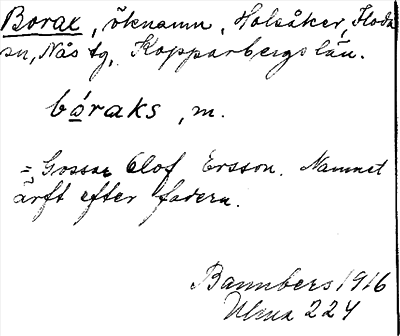 Borax, öknamn, Holsåker, Floda
sn, Nås tg, Kopparbergs län.
bóraks, m.
= Gossar Olof Ersson. Namnet
ärft efter fadern.
Bannbers 1916
Ulma 224